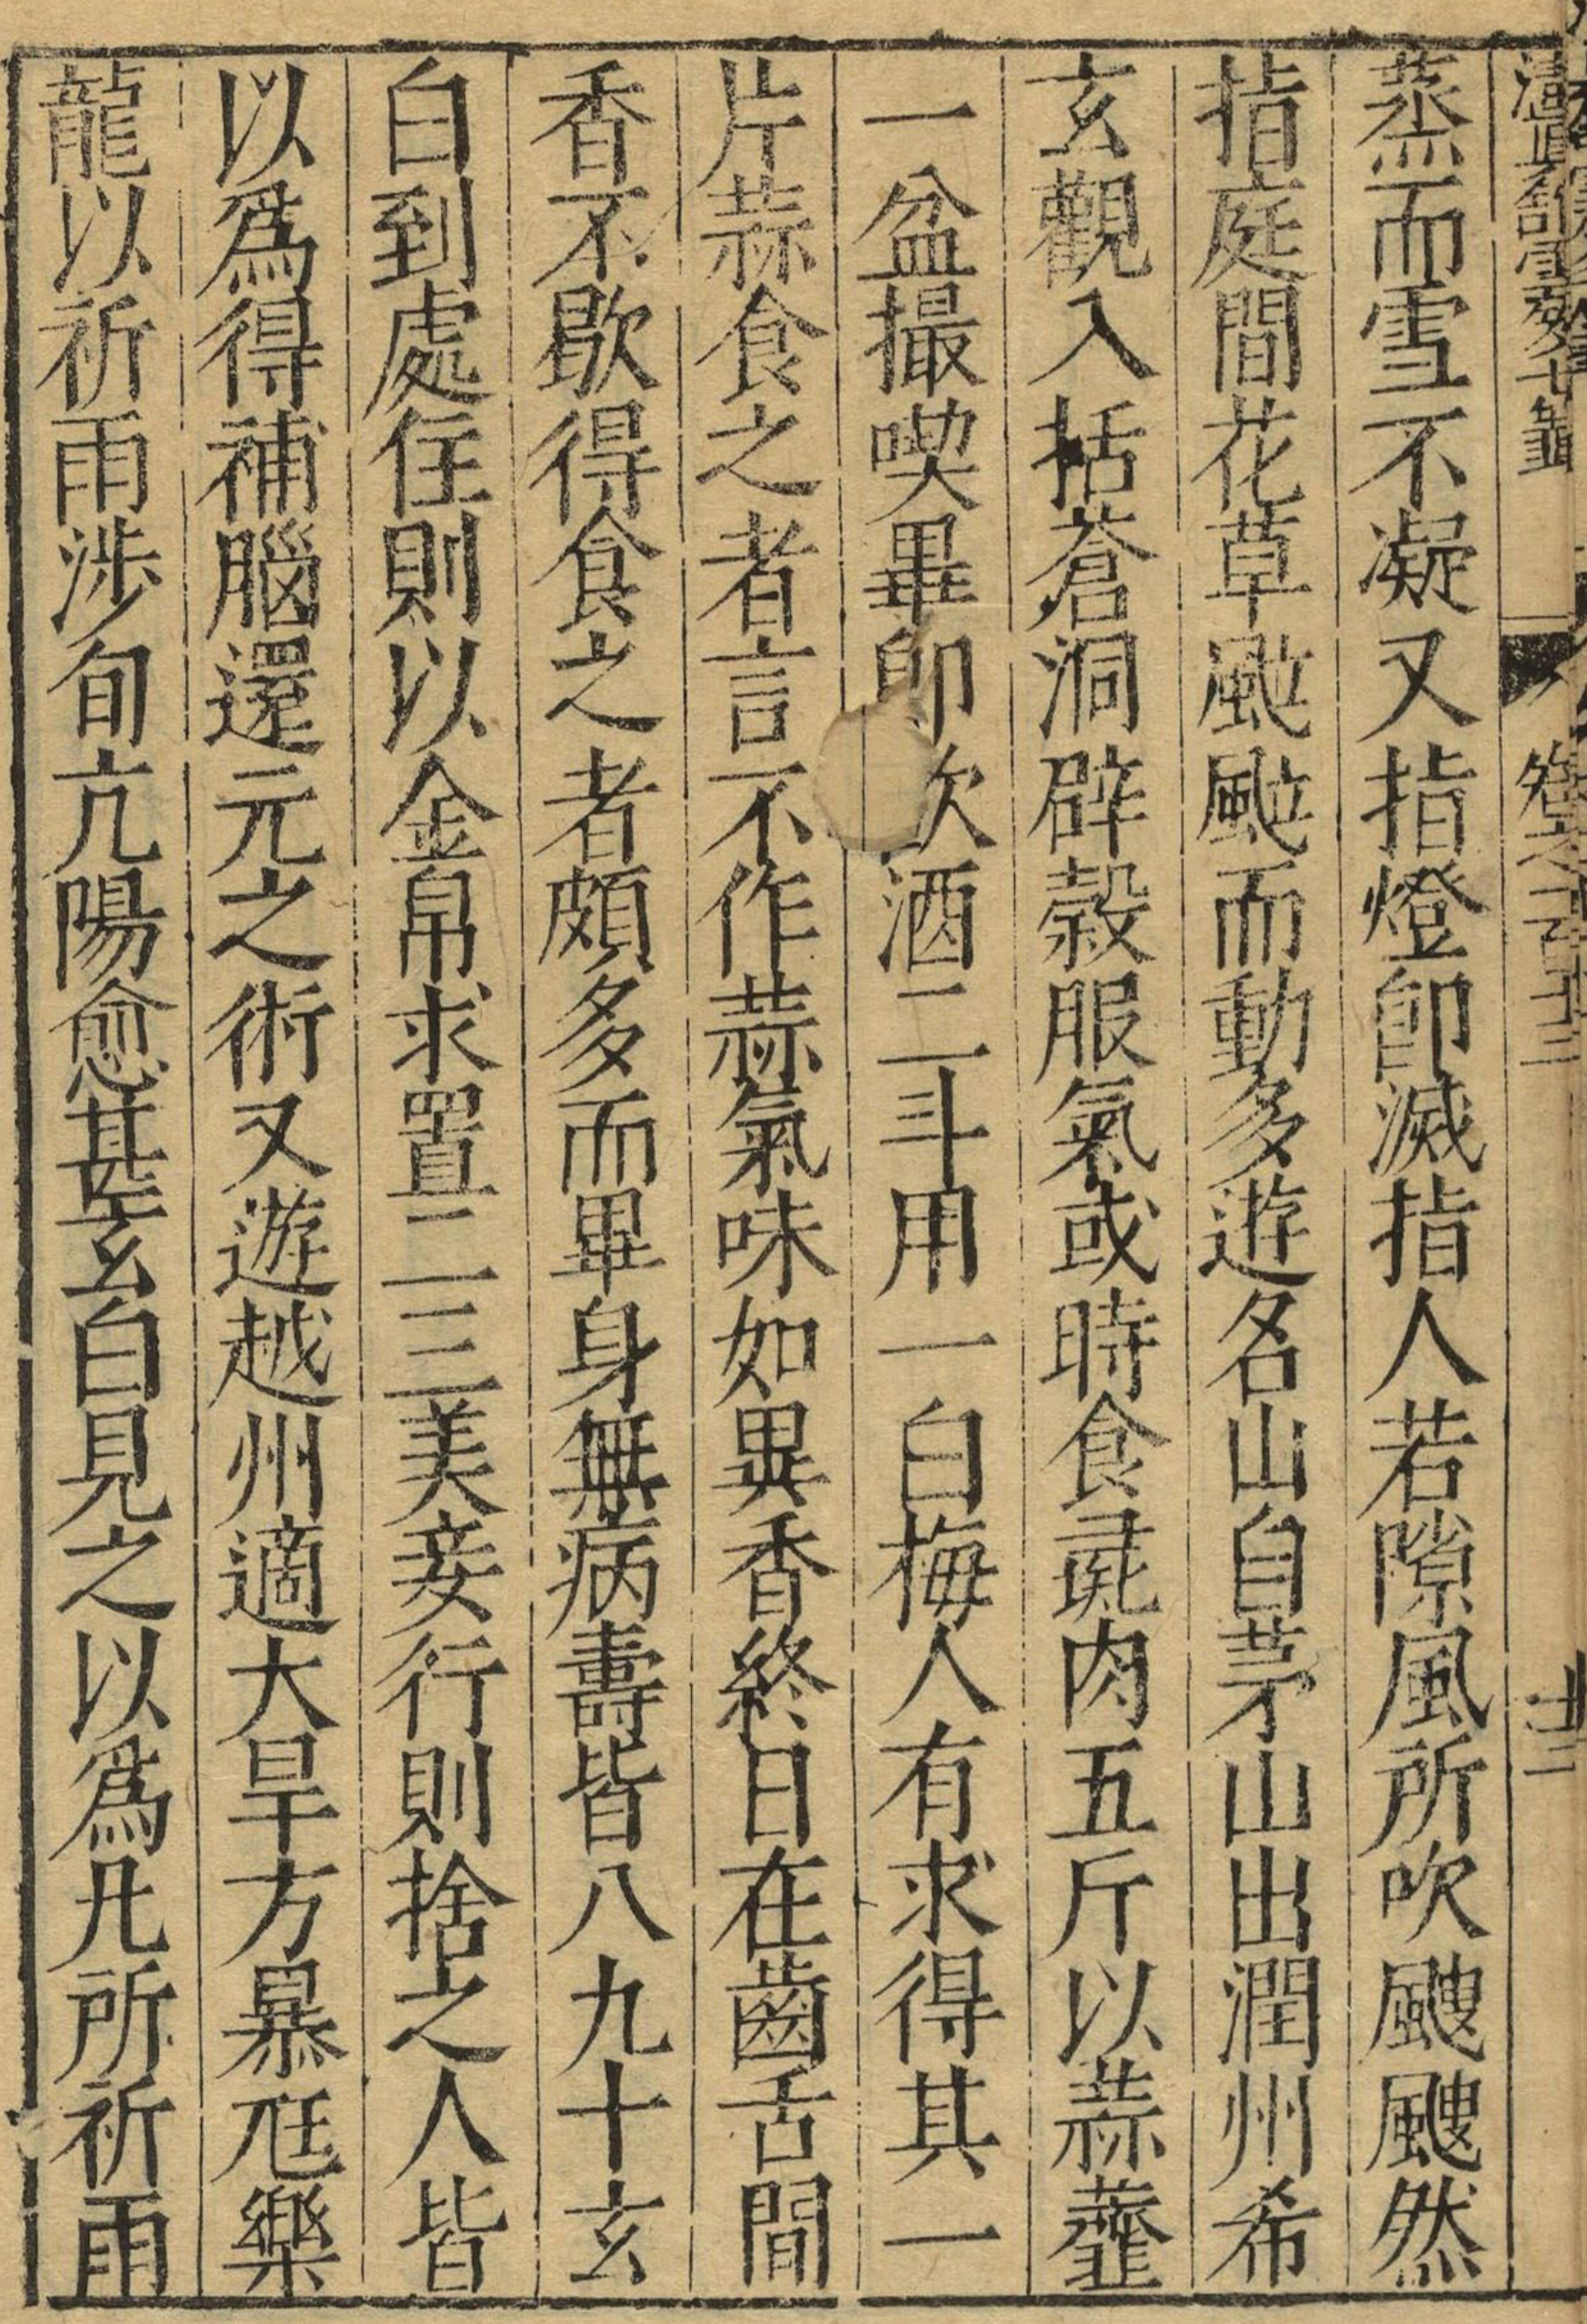 蒸而雪不凝又指燈卽滅指人若隙風所吹颼颼然
指庭間花草颭颭而動多遊名山自茅山出潤州希
玄觀入括蒼洞辟榖服氣或時食彘肉五斤以蒜虀
一盆撮喫畢卽飲酒二斗用一白梅人有求得其一
片蒜食之者言不作蒜氣味如異香終日在齒舌間
香不歇得食之者頗多而畢身無病壽皆八九十玄
白到處住則以金帛求置二三美妾行則捨之人皆
以爲得補腦還元之術又遊越州適大旱方暴尫樂
龍以祈雨涉旬亢陽愈甚玄白見之以爲凡所祈雨